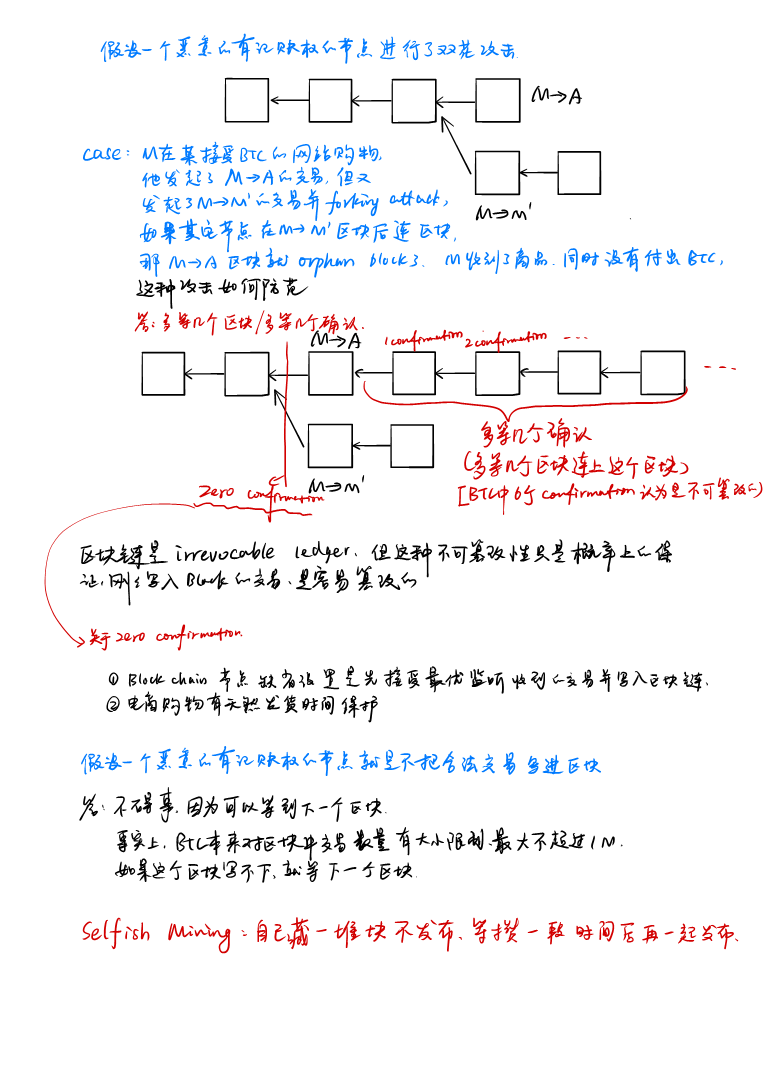 假设一个恶意的有记账权的节点进行了双花攻击
M→A
case: M在某接受BTC的网站购物,
他发起了 M→A的交易, 但又
发起了M→M'的交易并 forking attack,
M→M'
如果其它节点在M→M'区块后连区块,
那 M→A 区块就 orphan block了. M收到了商品. 同时没有付出BTC,
这种攻击如何防范
答: 多等几个区块/多等几个确认.
M→A
1confirmation 2confirmation ...
多等几个确认
(多等几个区块连上这个区块)
M→M'
zero confirmation
[BTC中6个confirmation认为是不可篡改的)
区块链是 irrevocable ledger. 但这种不可篡改性只是概率上的保
证, 刚刚写入Block的交易, 是容易篡改的
关于zero confirmation.
① Block chain 节点缺省设置是先接受最优监听收到的交易并写入区块链.
② 电商购物有天然发货时间保护
假设一个恶意的有记账权的节点就是不把合法交易写进区块
答: 不碍事, 因为可以等到下一个区块.
事实上, BTC本来对区块中交易数量有大小限制, 最大不超过1M.
如果这个区块写不下, 就等下一个区块.
Selfish Mining: 自己藏一堆块不发布、等攒一段时间后再一起发布.